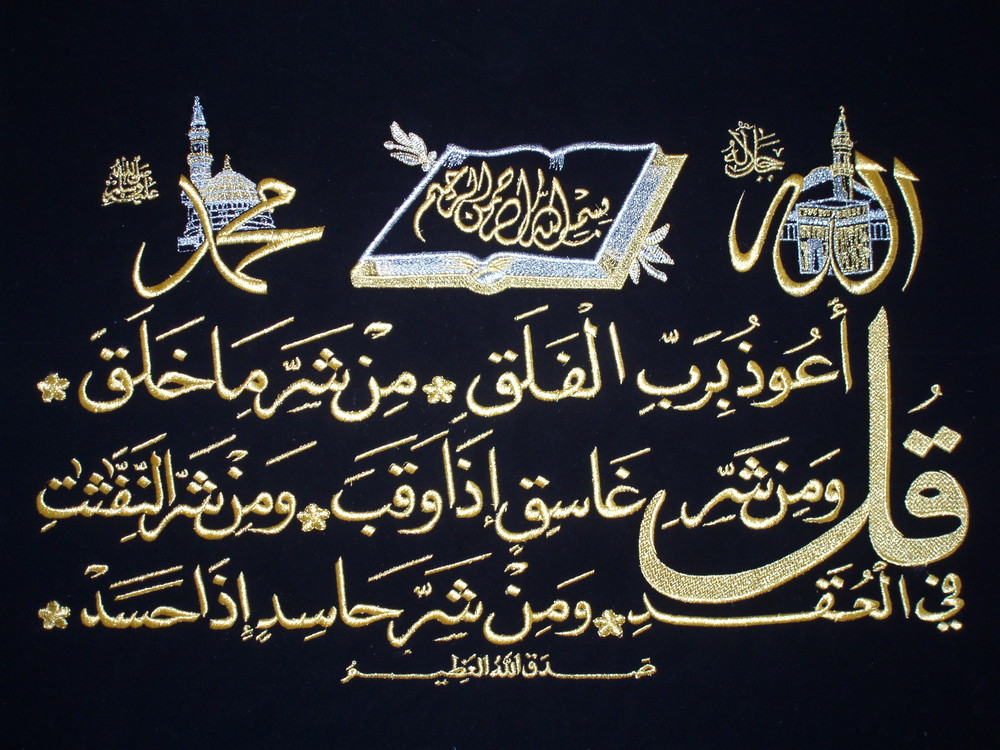 الله جل جلاله
بسم الله الرحمن الرحيم
محمد صلى الله عليه وسلم
قُلْ أَعُوذُ بِرَبِّ الْفَلَقِ مِنْ شَرِّ مَا خَلَقَ
وَمِن شَرِّ غَاسِقٍ إِذَا وَقَبَ وَمِنْ شَرِّ النَّفَّثَتِ
فِي الْعُقَدِ وَمِنْ شَرِّ حَاسِدٍ إِذَا حَسَدَ
صَدَقَ اللهُ العَظِيمُ